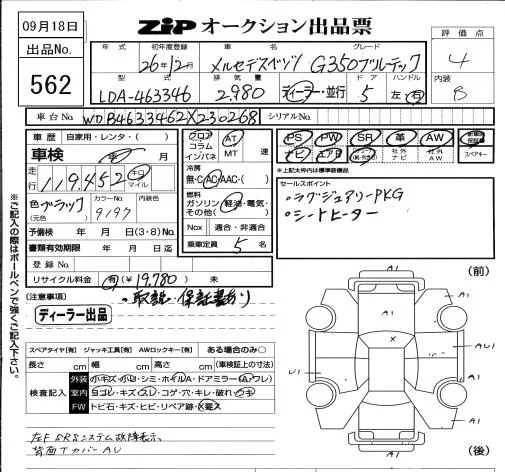 09月18日
出品No.
562
ZIP オークション出品票
評価点
4
内装
B
年式 初年度登録 車名 グレード
26年12月 メルセデスベンツ G350ブルーテック
型式 排気量 ドア ハンドル
LDA-463346 2.980 ディーラー・並行 5 左・右
車台No. WDB4633462X230268 シリアルNo.
車歴 自家用・レンタ・( )
車検 年 月
走行 119,452 キロ マイル
色 ブラック (元色) カラーNo. 9197 内装色
予備検 年 月(3・8)もの
書類有効期限 年 月 日迄
登録No.
リサイクル料金 有(¥19.780) 未
フロア コラム インパネ AT MT 速
冷房 無・C・AC・AAC・( )
燃料 ガソリン・軽油・電気・その他( )
Nox 適合・非適合
乗車定員 5 名
PS PW SR 革 AW
ナビ エアB 社外ナビ 社外AW スペアキー
※上記太枠内は標準装備品
セールスポイント
・ラグジュアリーPKG
・シートヒーター
(注意事項) ・取説・保証書あり
ディーラー出品
※ご記入の際はボールペンで強くご記入下さい。
スペアタイヤ[有] ジャッキ工具[有] AWロックキー[有] ある場合のみ○
長さ cm 幅 cm 高さ cm (車検証上の寸法)
検査記入
外装 小キズ・小凹・シミ・ホイルA・ドアミラー(A・ワレ)
室内 ヨゴレ・キズ・スレ・コゲ・穴・キレ・破れ・ウキ
FW トビ石・キズ・ヒビ・リペア跡・X要ス
左F SRSシステム故障表示、
背面TカバーAU
(前)
A1
A1
A1
A1
X
AU1
U1
A1
A1
(後)